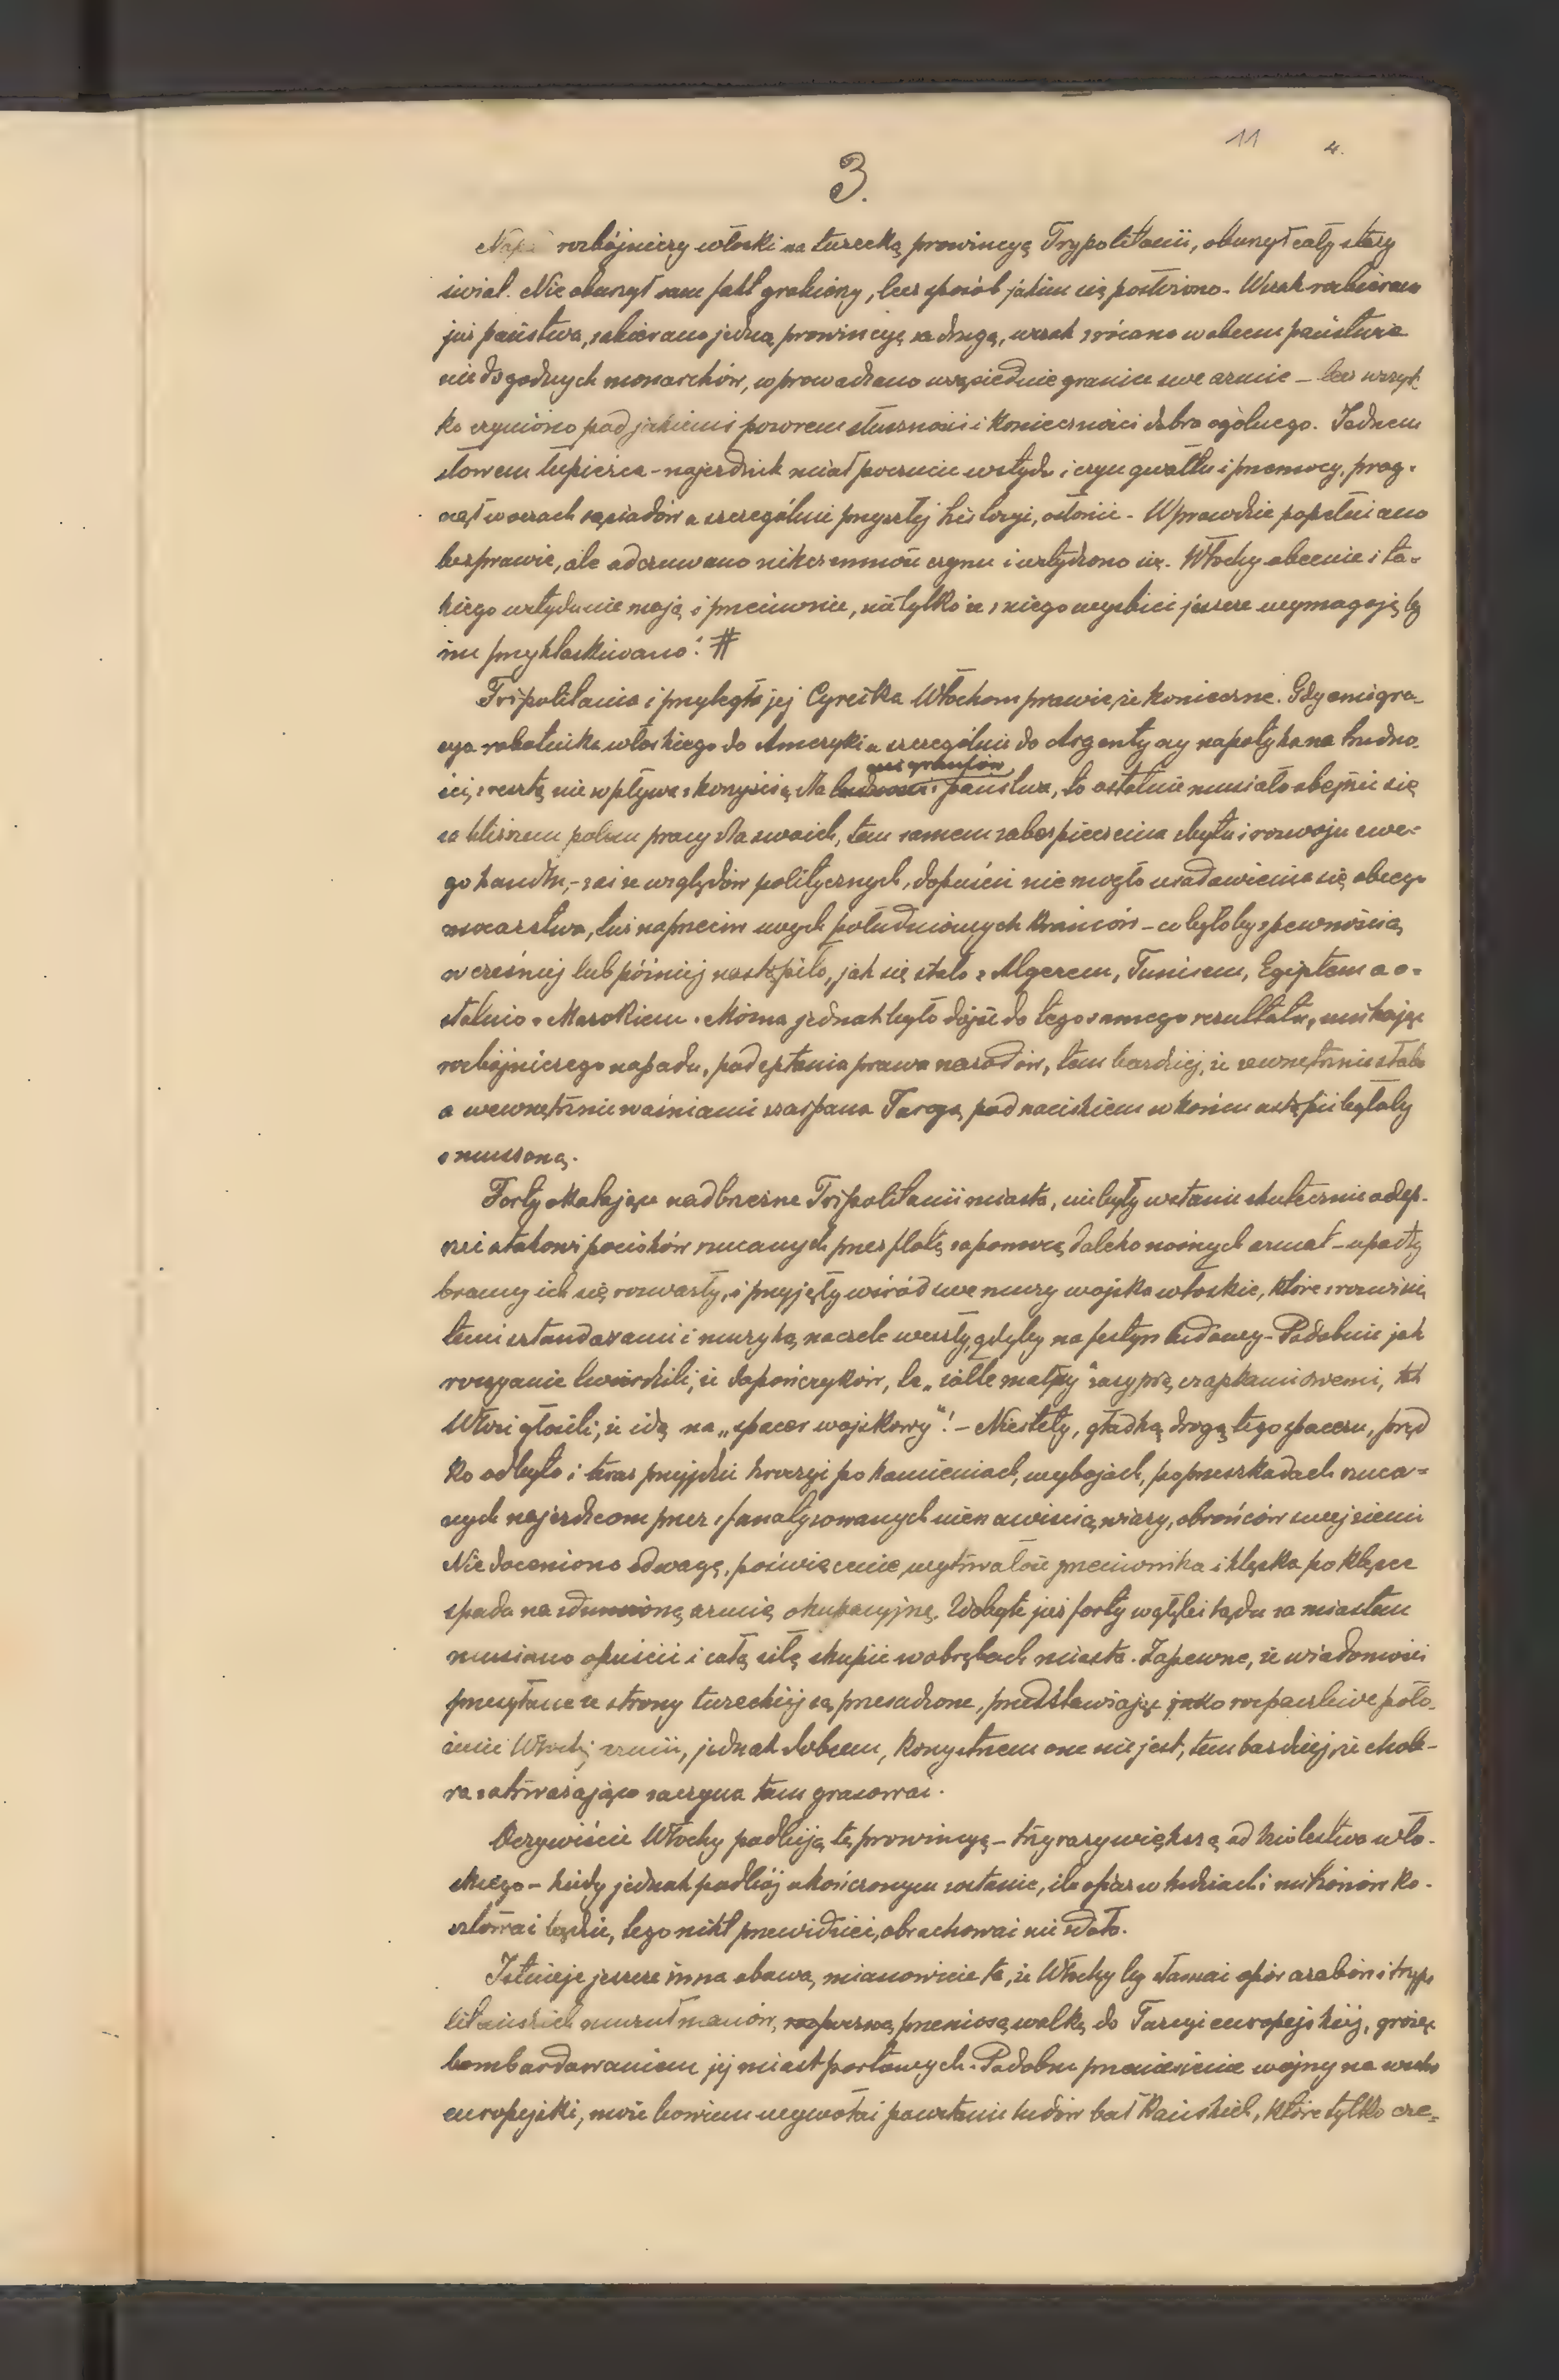 11 4.
3.
Napad rozbójniczy włoski na turecką prowincyę Trypolitanii, oburzył cały stary
świat. Nie oburzył sam fakt grabieży, lecz sposób jakim się posłużono. Wszak rozbierano
już państwa, zabierano jedną prowincyę za drugą, wszak zrzucano w obcem państwie
niedogodnych monarchów, wprowadzano w sąsiednie granice swe armie – lecz wszyst-
ko czyniono pod jakiemiś pozorem słuszności i konieczności dobra ogólnego. Jednem
słowem łupieżca – najezdnik miał poczucie wstydu i czyn gwałtu i przemocy, prag-
nął w oczach sąsiadów a szczególnie przyszłej historyi, osłonić. Wprawdzie popełniano
bezprawie, ale odczuwano nikczemność czynu i wstydzono się. Włochy obecnie i ta-
kiego wstydu nie mają i przeciwnie, nie tylko że z niego wyzbici jeszcze wymagają by
im przyklaskiwano! #
Tripolitania i przyległa jej Cyreika Włochom prawie, że konieczne. Gdy emigra-
cya robotnika włoskiego do Ameryki a szczególnie do Argentyny napotyka na trudno-
ści, zresztą nie wpływa z korzyścią dla emigrantów i państwa, to ostatnie musiało obejrzeć się
za bliższem polem pracy dla swoich, tem samem zabezpieczenia zbytu i rozwoju swe-
go handlu, – zaś ze względów politycznych, dopuścić nie mogło usadowienia się obcego
mocarstwa, tuż naprzeciw swych południowych krańców – co byłoby z pewnością
wcześniej lub później nastąpiło, jak się stało z Algerem, Tunisem, Egiptem a o-
statnio z Marokiem. Można jednak było dojść do tego samego rezultatu, unikając
rozbójniczego napadu, podeptania prawa narodów, tem bardziej, że zewnętrznie słaba
a wewnętrznie waśniami szarpana Turcya, pod naciskiem w końcu ustąpić byłaby
zmuszoną.
Forty okalające nadbrzeżne Tripolitanii miasta, nie były w stanie skutecznie odep-
rzeć atakowi pocisków rzucanych przez flotę zapomocą daleko nośnych armat – upadły
bramy ich się rozwarły, i przyjęły wśród swe mury wojska włoskie, które z rozwinię-
temi sztandarami i muzyką na czele weszły, gdyby na festyn ludowy. – Podobnie jak
rosyanie twierdzili, że Japończyków, te „żółte małpy" zasypią czapkami swemi, tak
Włosi głosili, że idą na „spacer wojskowy"! – Niestety, gładką drogą tego spaceru, pręd
ko odbyto i teraz przyjdzie kroczyć po kamieniach, wybojach, po przeszkodach rzuca-
nych najezdcom przez sfanatyzowanych nienawiścią wiary, obrońców swej ziemi
Nie doceniono odwagę, poświęcenie wytrwałość przeciwnika i klęska po klęsce
spada na zdumioną armię okupacyjną. Zdobyte już forty w głębi lądu za miastem
musiano opuścić i całą siłę skupić w obrębach miasta. Zapewne, że wiadomości
przesyłane ze strony tureckiej są przesadzone, przedstawiając jako rozpaczliwe poło-
żenie Włoskiej armii, jednak dobrem, korzystnem one nie jest, tem bardziej, że chole-
ra zatrważająco zaczyna tam grasować.
Oczywiście Włochy podbiją tę prowincyę – trzy razy większą od królestwa wło-
skiego – kiedy jednak podbój ukończonym zostanie, ile ofiar w ludziach i milionów ko-
sztować będzie, tego nikt przewidzieć, obrachować nie zdoła.
Istnieje jeszcze inna obawa, mianowicie ta, że Włochy by złamać opór arabów i trypo
litańskich muzułmanów, przeniosą walkę do Turcyi europejskiej, grożąc
bombardowaniem jej miast portowych. Podobne przeniesienie wojny na wschód
europejski, może bowiem wywołać powstanie ludów bałkańskich, które tylko cze-